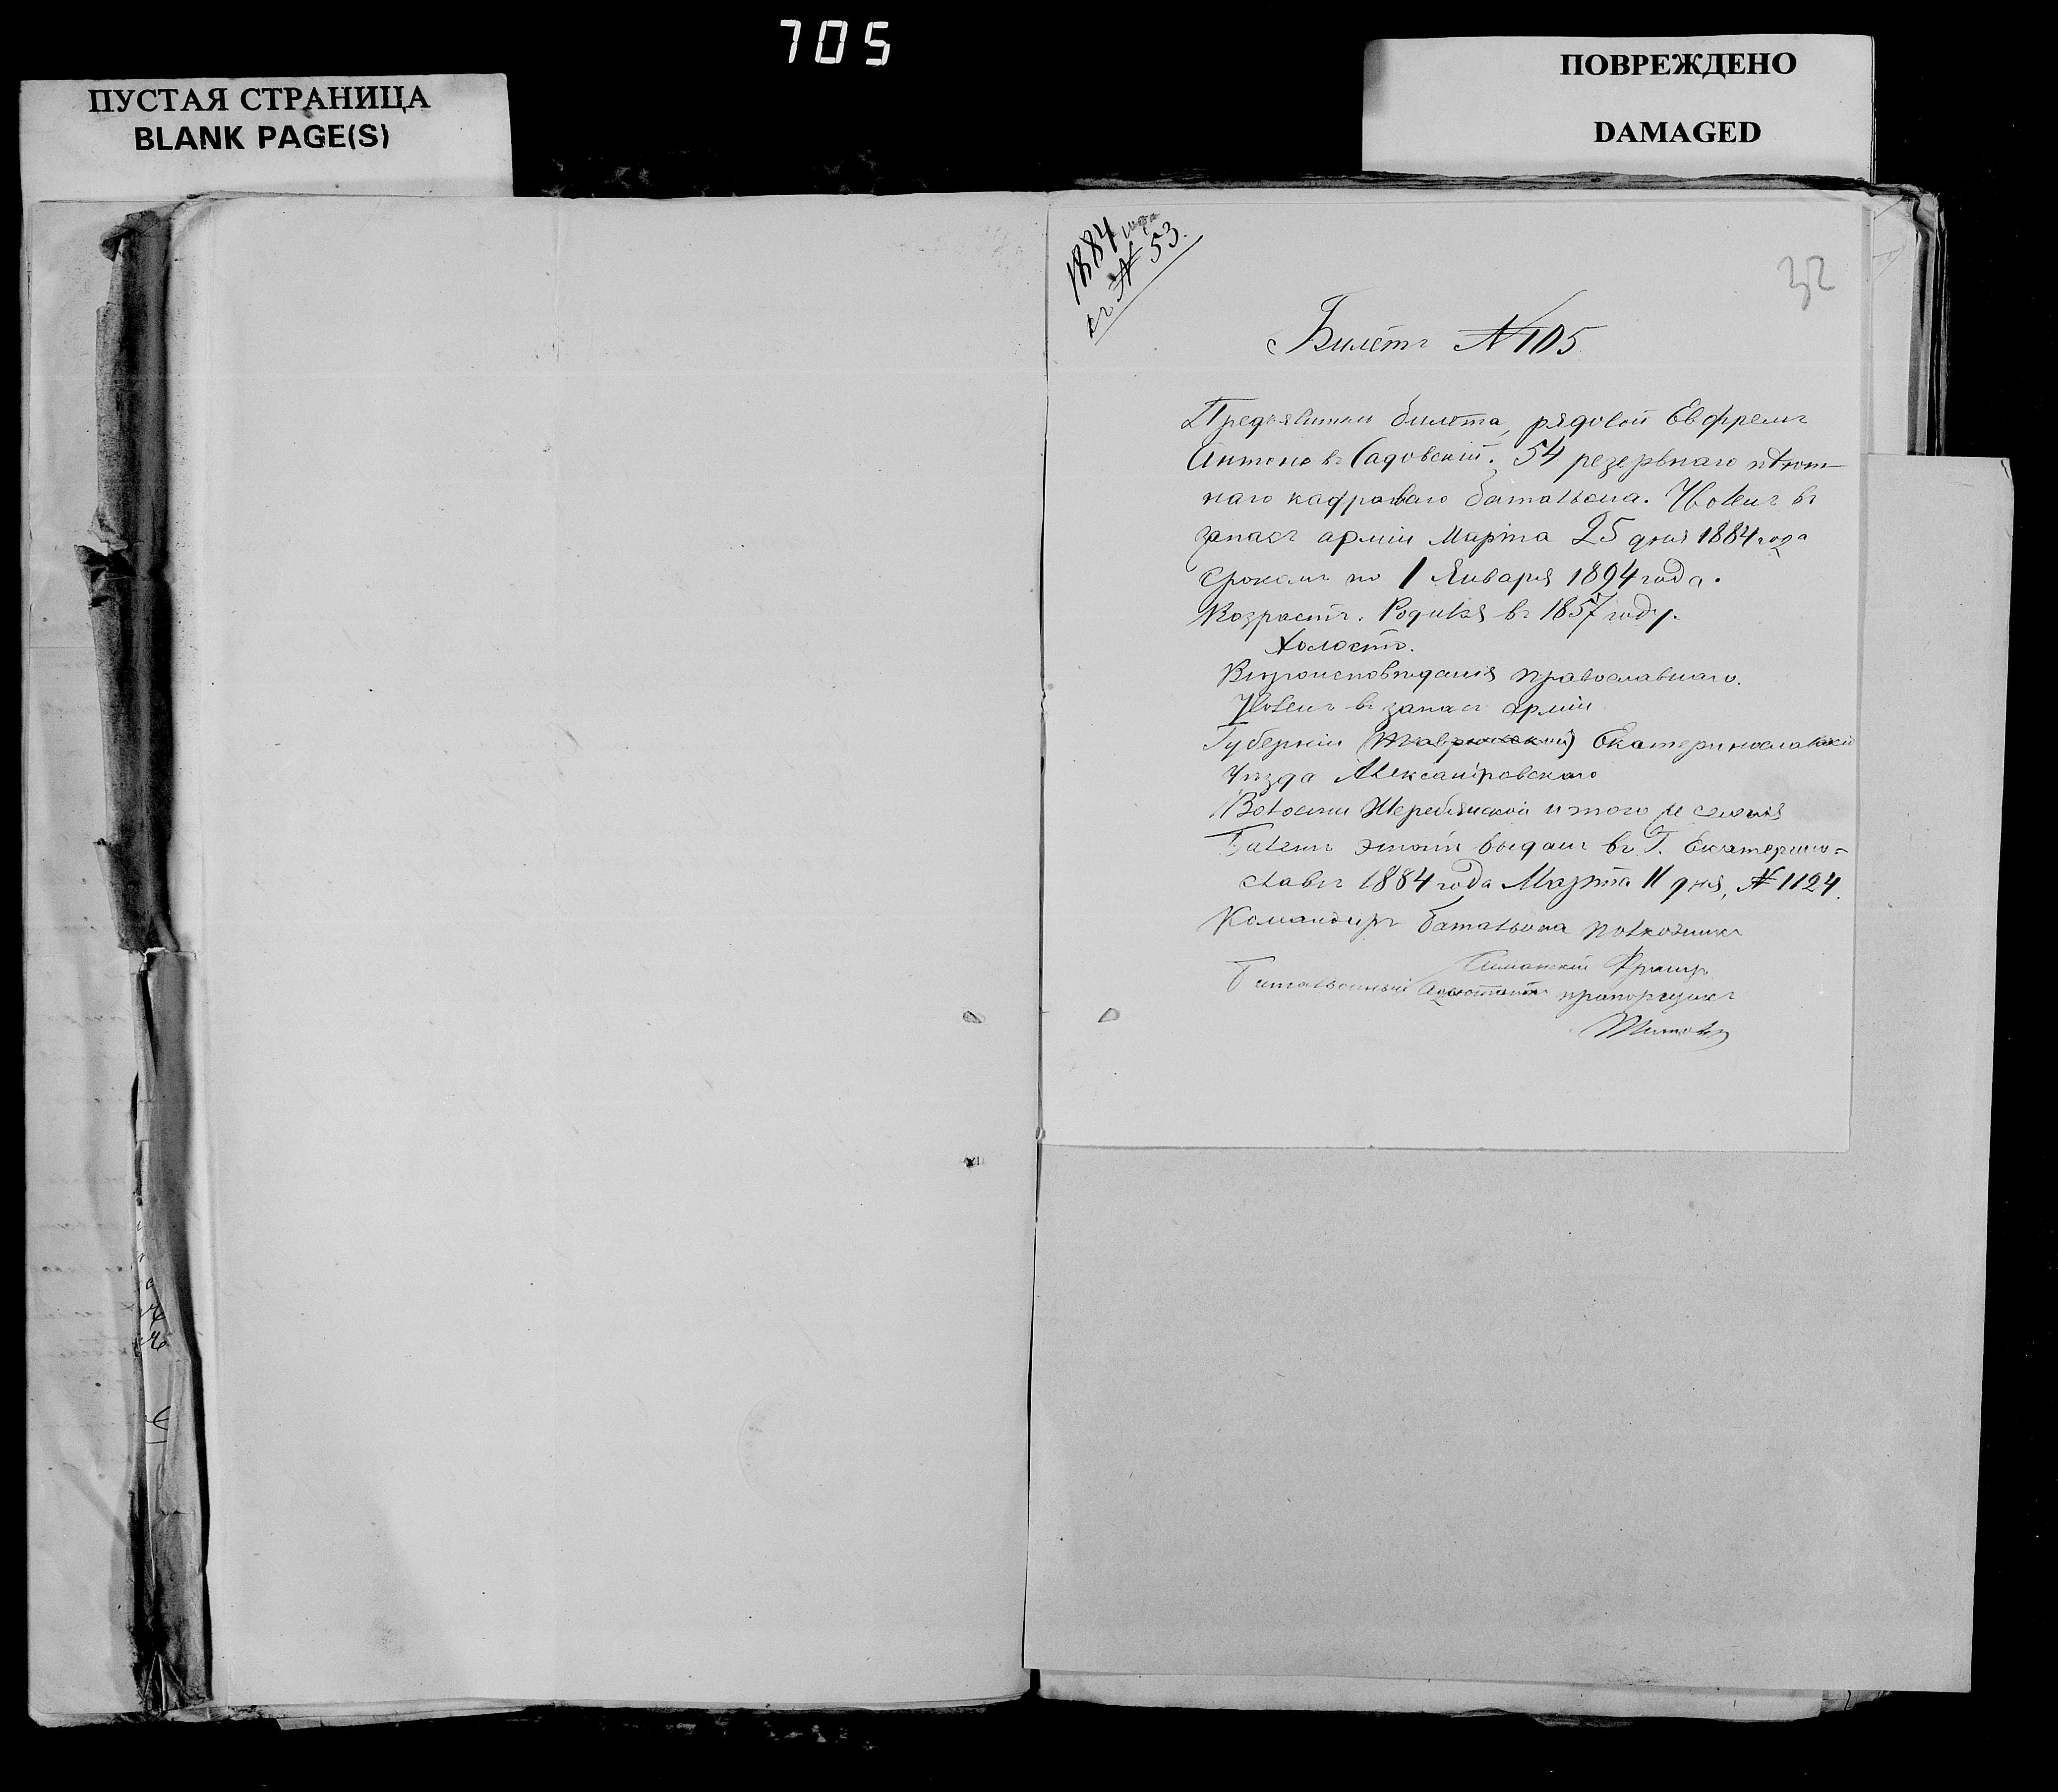 705
ПУСТАЯ СТРАНИЦА
BLANK PAGE(S)
ПОВРЕЖДЕНО
DAMAGED
1884 года
къ № 53.
32
Билетъ №105
Предъявитель билета, рядовой Евфремъ
Антоновъ Садовский. 54 резервнаго пѣхот-
наго кадроваго баталіона. Уволенъ въ
запасъ арміи Марта 25 дня 1884 года
срокомъ по 1 Января 1894 года.
Возрастъ. Родился въ 1857 году.
Холостъ.
Вѣроисповѣданія православнаго.
Уволенъ въ запасъ арміи
Губерніи (Таврической) Екатеринославской
Уѣзда Александровскаго
Волости Жеребянской и того же селенія
Билетъ этотъ выданъ въ Г. Екатерино-
славѣ 1884 года Марта 11 дня, № 1124.
Командиръ баталіона полковникъ
Батальонный Адъютантъ прапорщикъ